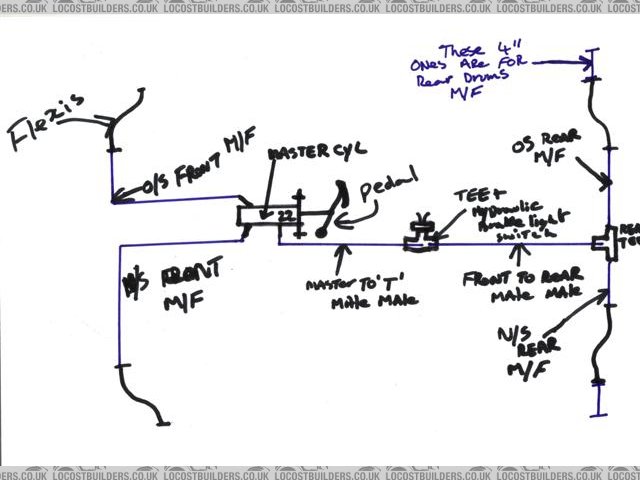 LOCOSTBUILDERS.CO.UK LOCOSTBUILDERS.CO.UK LOCOSTBUILDERS.CO.UK LOCOSTBUILDERS.CO.UK
These 4"
ONES ARE FOR
Rear Drums
M/F
Flexis
O/S FRONT M/F
MASTER CYL
22
Pedal
TEE +
Hydraulic
Brake light
switch
OS REAR
M/F
TEE
N/S FRONT
M/F
MASTER TO 'T'
Male Male
FRONT TO REAR
Male Male
N/S
REAR
M/F
LOCOSTBUILDERS.CO.UK LOCOSTBUILDERS.CO.UK LOCOSTBUILDERS.CO.UK LOCOSTBUILDERS.CO.UK